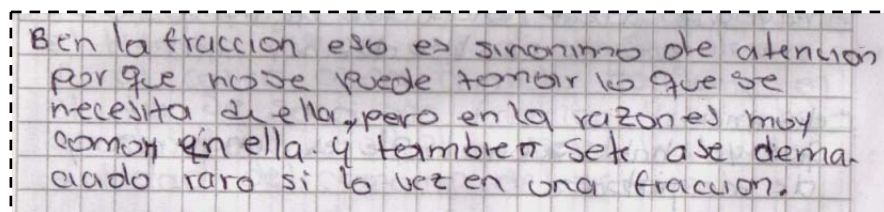 B en la fraccion eso es sinonimo de atencion
por que nose puede tomar lo que se
necesita de ella, pero en la razon es muy
comon en ella. y tambien sete ase dema-
ciado raro si lo vez en una fraccion.